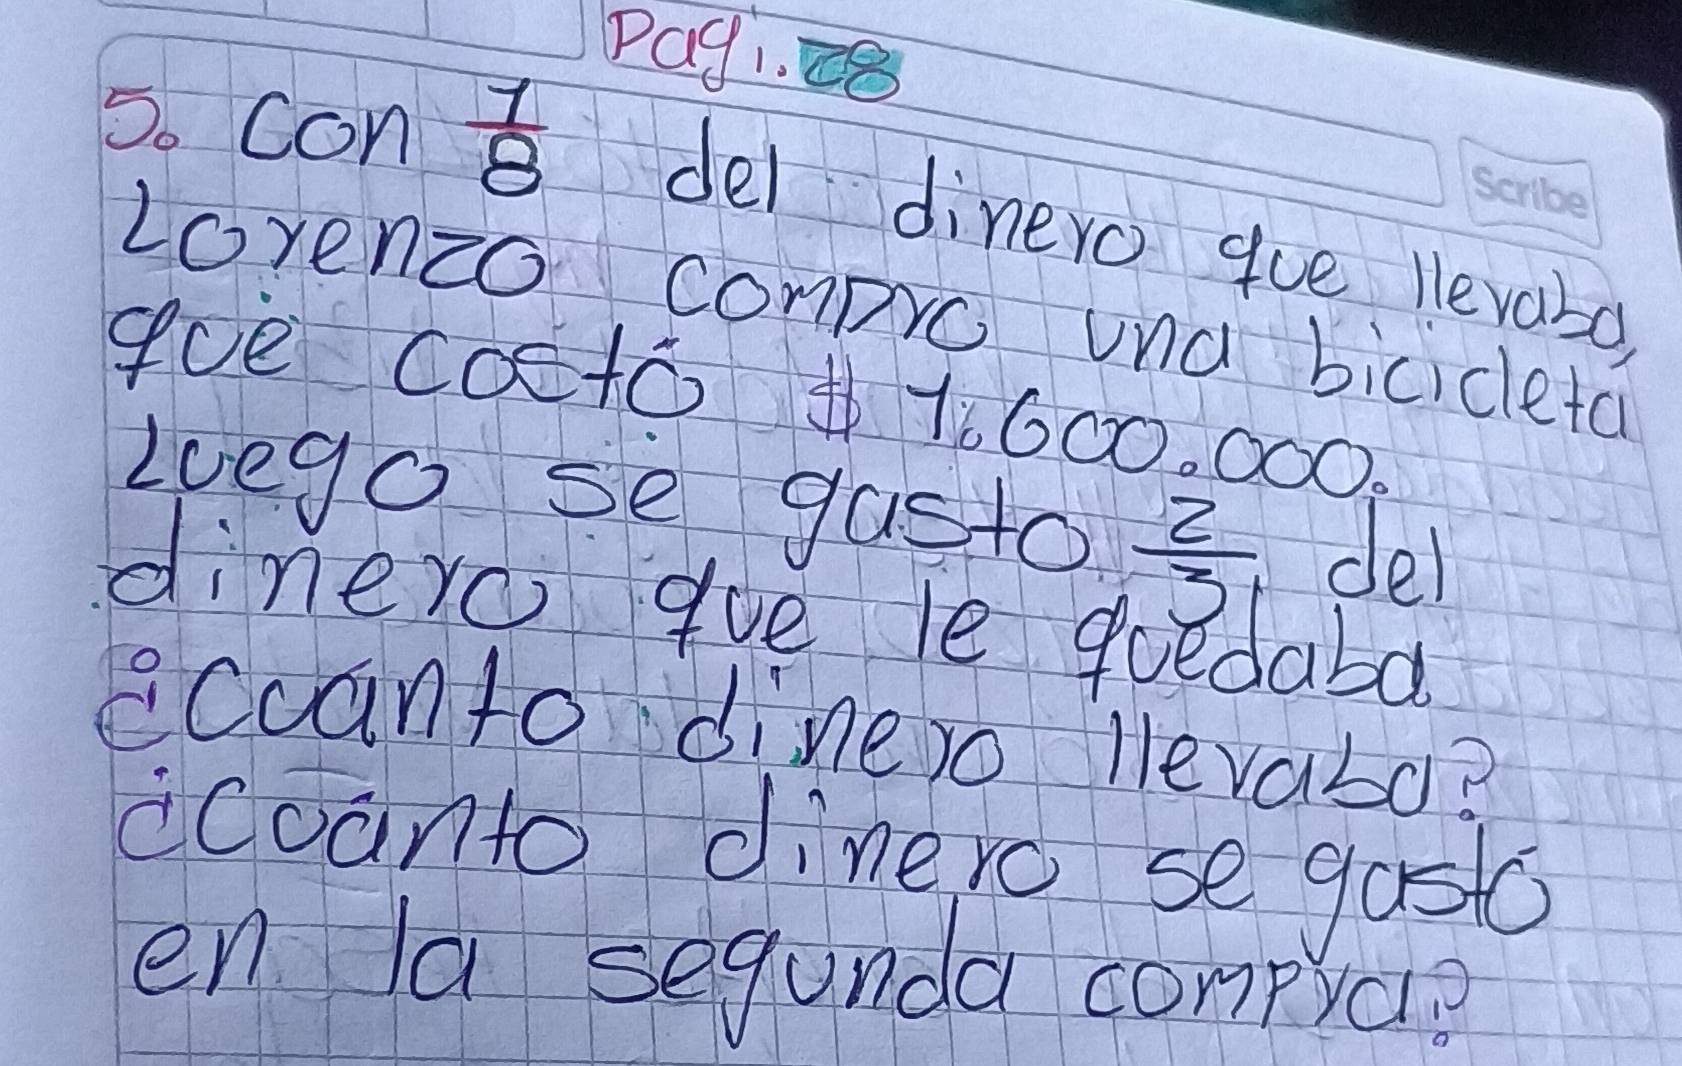 Pagi. 28
Scribe
5. Con 1/8 del dinero que llevaba,
Lorenzo compro una bicicleta
que costó $ 1.600.000.
Luego se gasto 2/3 del
dinero que le quedaba
¿Cuánto dinero llevaba?
¿Cuánto dinero se gastó
en la segunda compra?